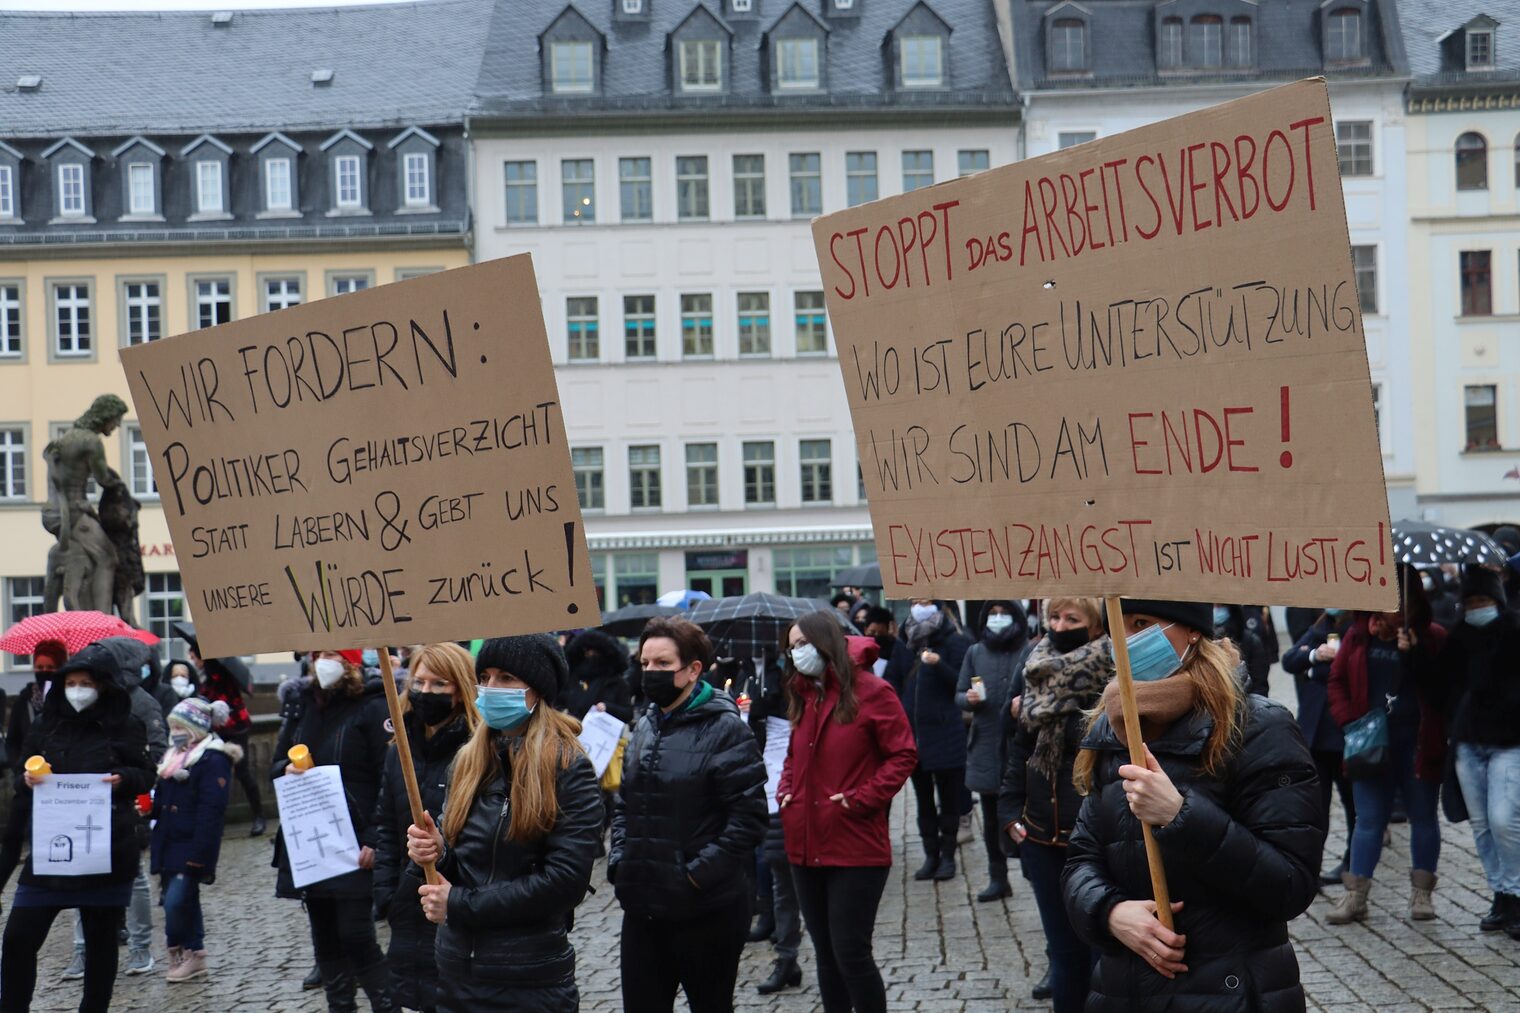 WIR FORDERN:
POLITIKER GEHALTSVERZICHT
STATT LABERN & GEBT UNS
UNSERE WÜRDE zurück!
STOPPT DAS ARBEITSVERBOT
WO IST EURE UNTERSTÜTZUNG
WIR SIND AM ENDE!
EXISTENZANGST IST NICHT LUSTIG!
Friseur
seit Dezember 2020
RIP